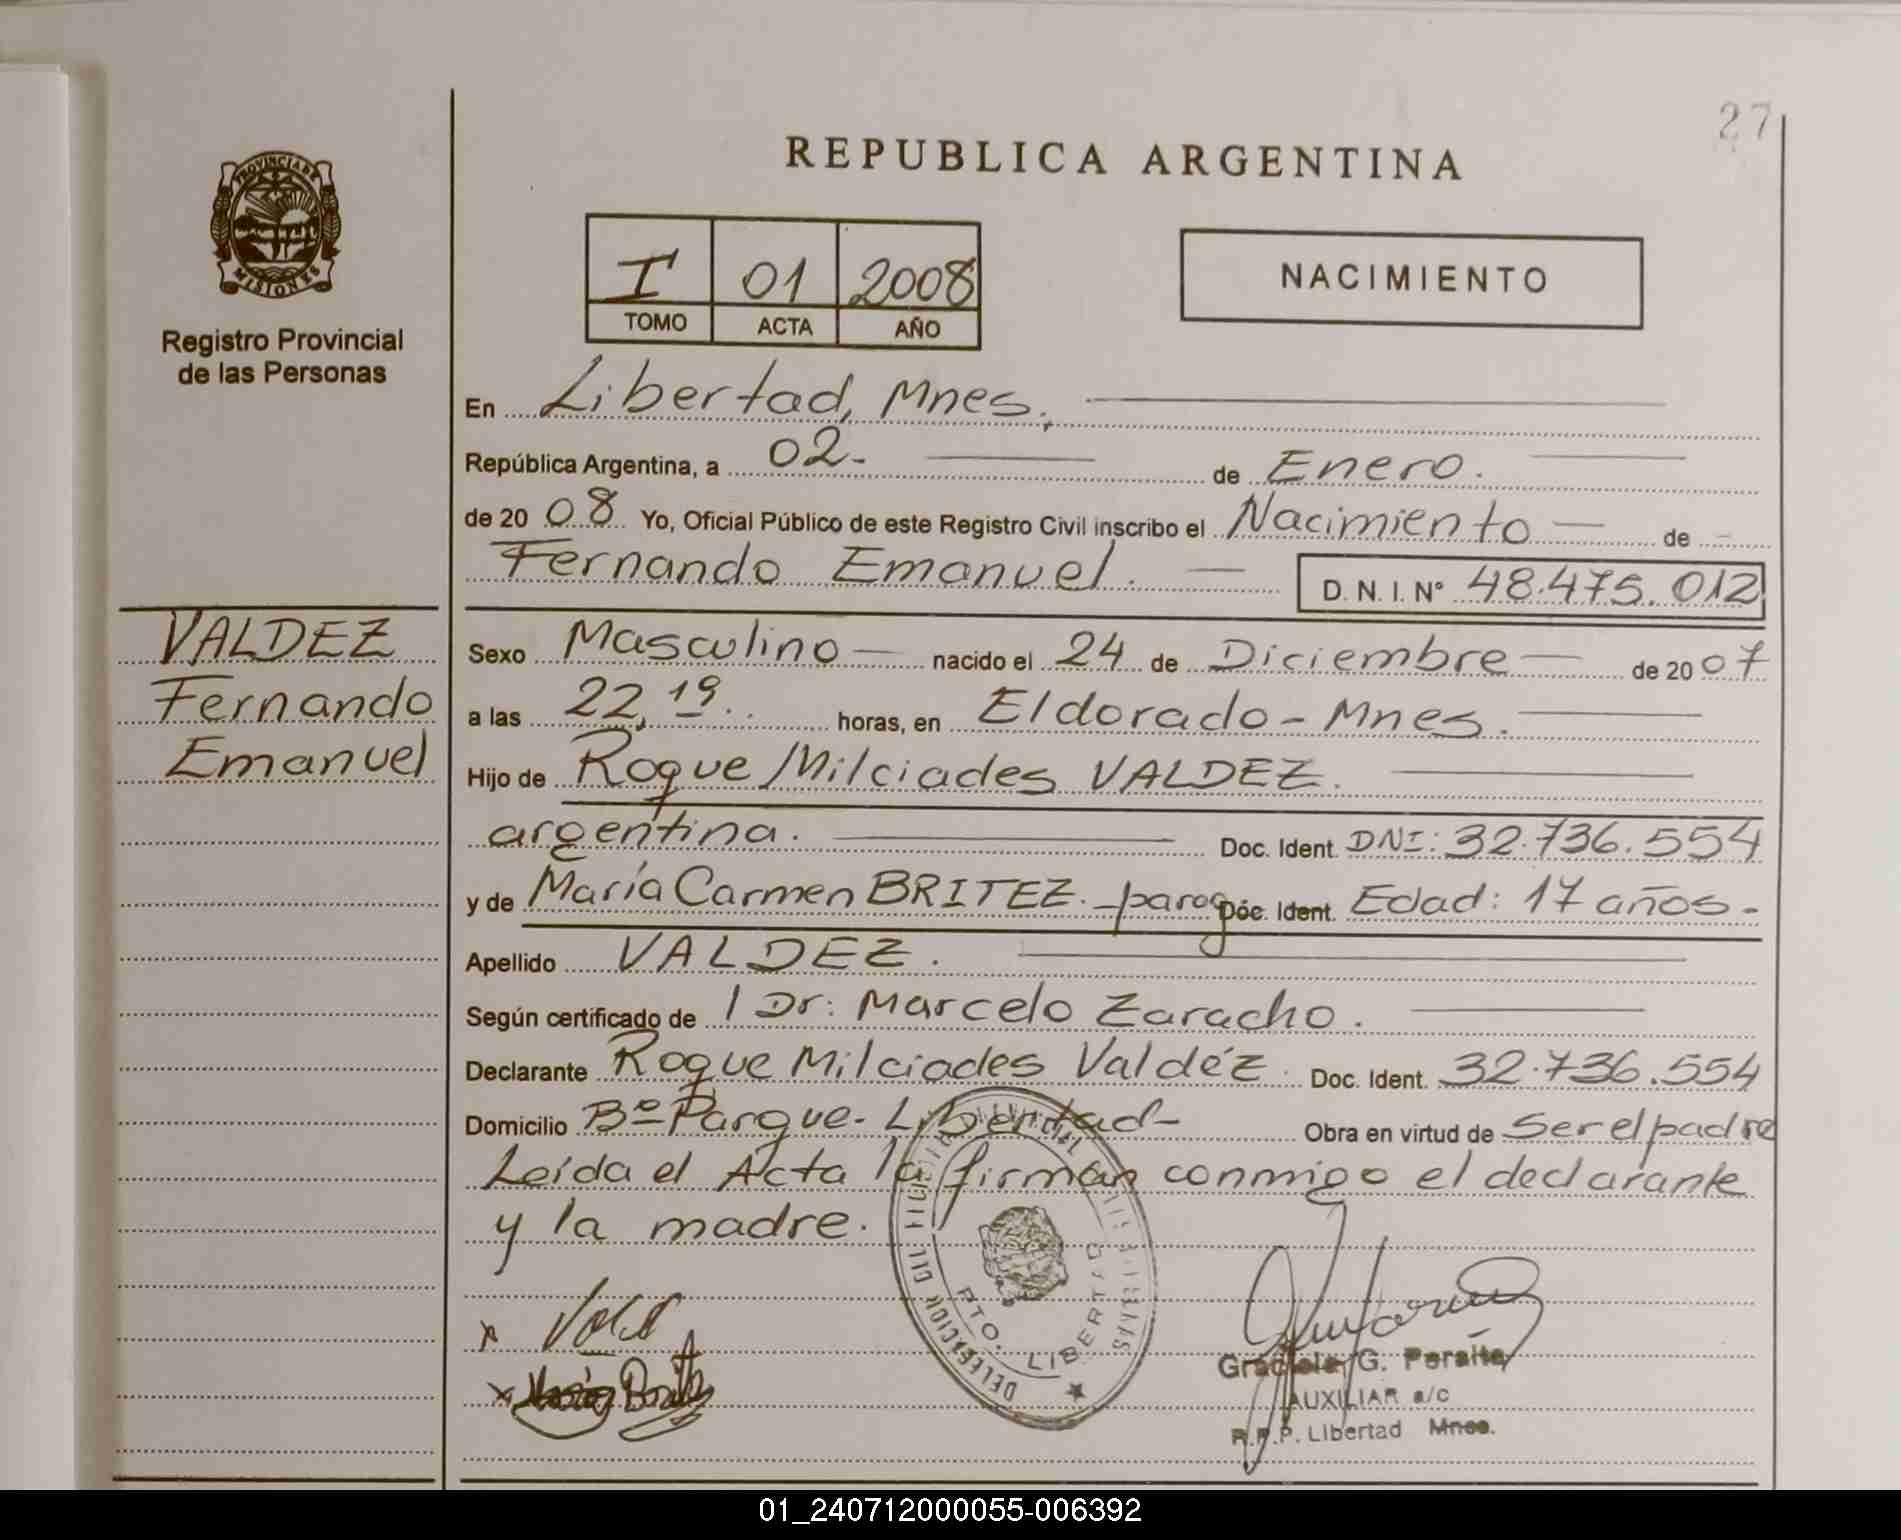 27
REPUBLICA ARGENTINA
PROVINCIA DE
MISIONES
Registro Provincial
de las Personas
I 01 2008
TOMO ACTA AÑO
NACIMIENTO
En Libertad, Mnes.
República Argentina, a 02- de Enero.
de 20 08 Yo, Oficial Público de este Registro Civil inscribo el Nacimiento de
Fernando Emanuel. D. N. I. Nº 48.475.012
VALDEZ
Fernando
Emanuel
Sexo Masculino nacido el 24 de Diciembre de 20 07
a las 22,19. horas, en Eldorado - Mnes.
Hijo de Roque Milciades VALDEZ.
argentina. Doc. Ident. DNI: 32.736.554
y de María Carmen BRITEZ. - parag Doc. Ident. Edad: 17 años.-
Apellido VALDEZ.
Según certificado de l Dr: Marcelo Zaracho.
Declarante Roque Milciades Valdéz. Doc. Ident. 32.736.554
Domicilio Bº Parque - Libertad - Obra en virtud de Ser el padre
Leída el Acta la firman conmigo el declarante
y la madre.
DELEGACION DEL
PTO. LIBERTAD
Graciela G. Peralta
AUXILIAR a/c
R.P.P. Libertad Mnes.
01_240712000055-006392